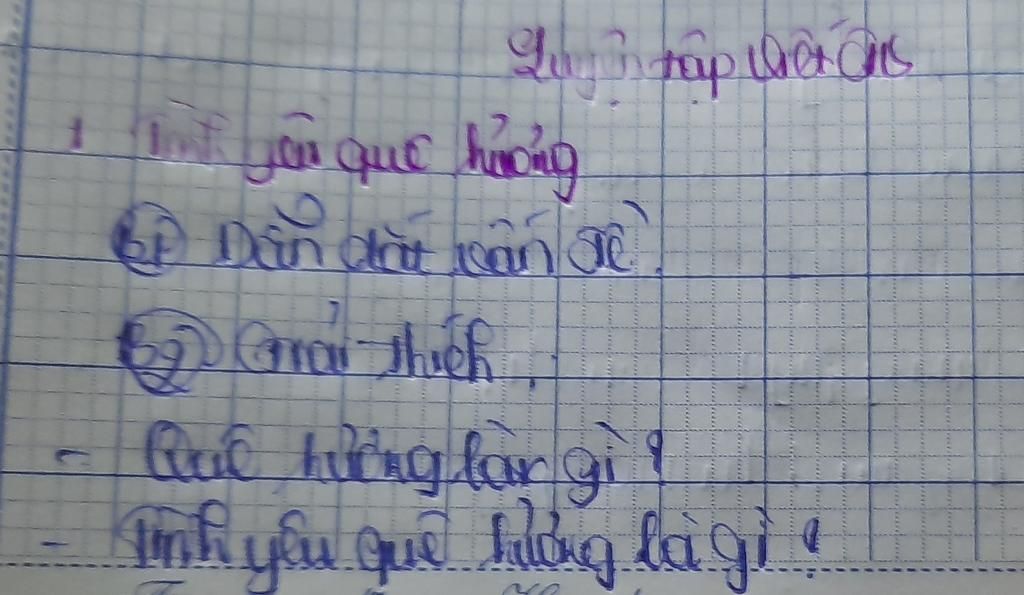 Luyện tập viết
1 Tình yêu quê hương
B1 Dẫn dắt vấn đề
B2 Giải thích
- Quê hương là gì?
- Tình yêu quê hương là gì?